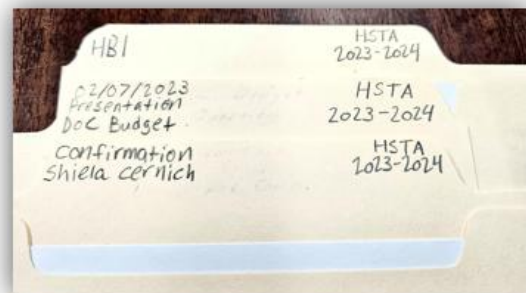 HB1
HSTA
2023-2024
02/07/2023
Presentation
DOC Budget
HSTA
2023-2024
Confirmation
Shiela Cernich
HSTA
2023-2024